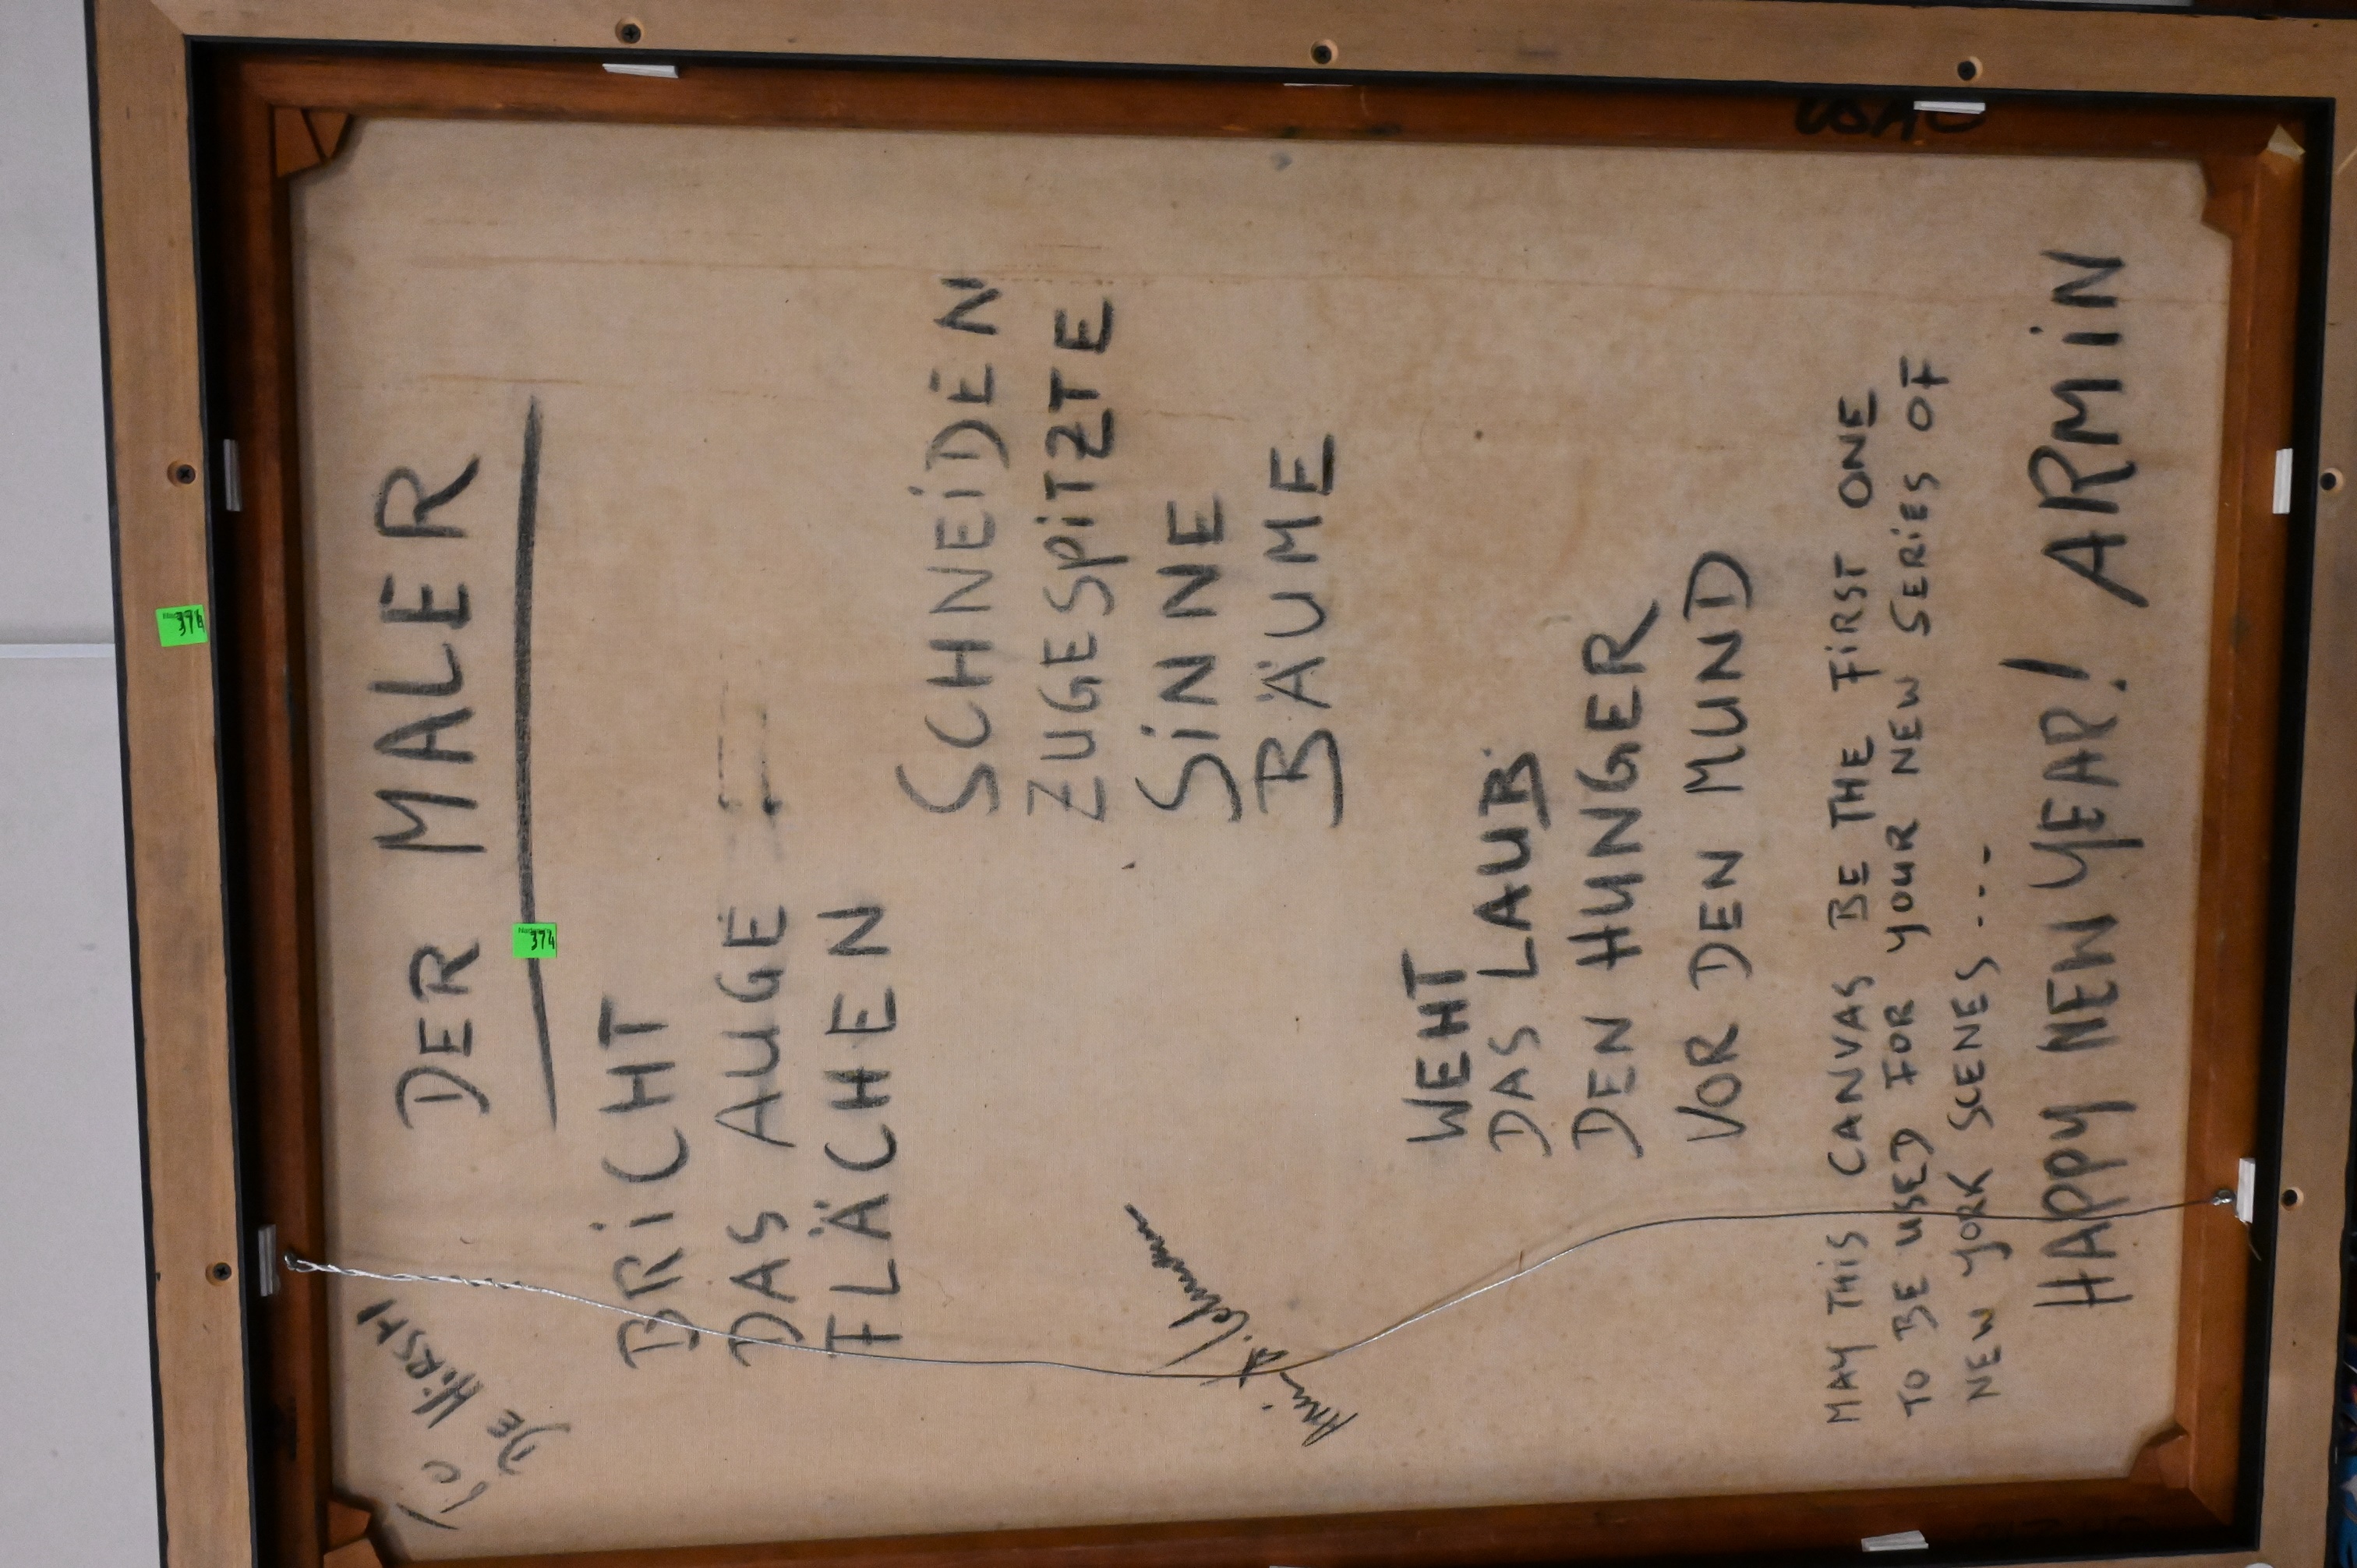 DER MALER
BRiCHT
DAS AUGE
FLÄCHEN
SCHNEiDEN
ZUGESPiTZTE
SiNNE
BÄUME
WEHT
DAS LAUB
DEN HUNGER
VOR DEN MUND
MAY THiS CANVAS BE THE FiRST ONE
TO BE USED FOR YOUR NEW SERiES OF
NEW YORK SCENES ...-
HAPPY NEW YEAR! ARMiN
DE HiRSH
374
374